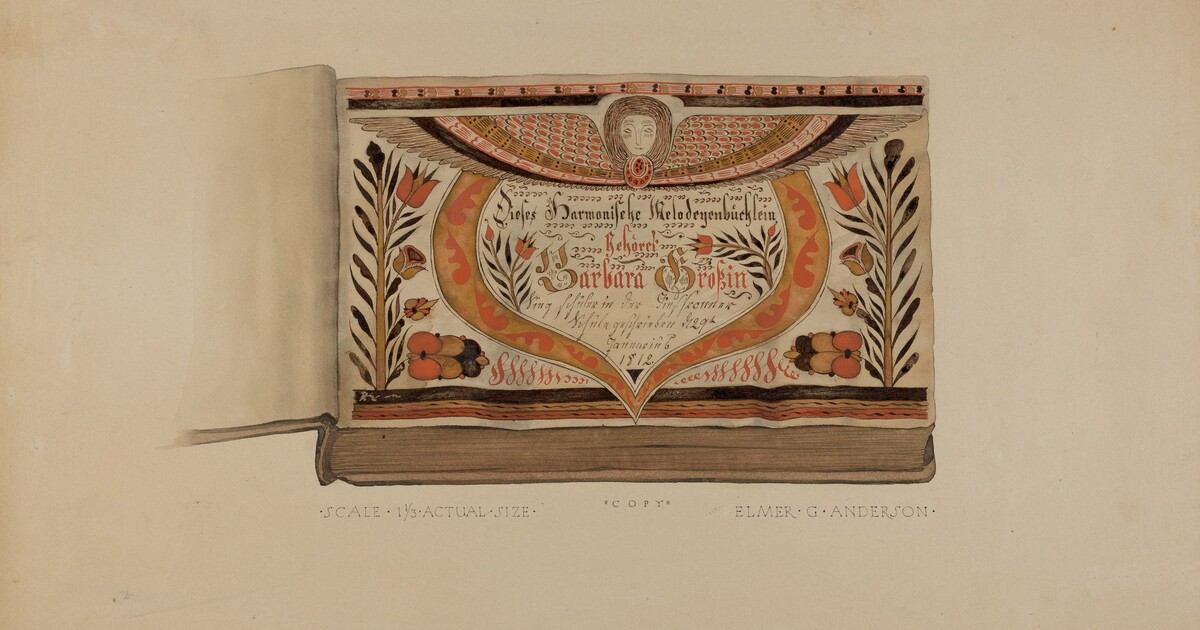 Dieses Harmonische Melodeyenbüchlein
Gehöret
Barbara Großin
Sing schüler in der
Schule geschrieben d 29t
Januarius
1812
·SCALE· 1⅓·ACTUAL·SIZE·
*COPY*
ELMER·G·ANDERSON·